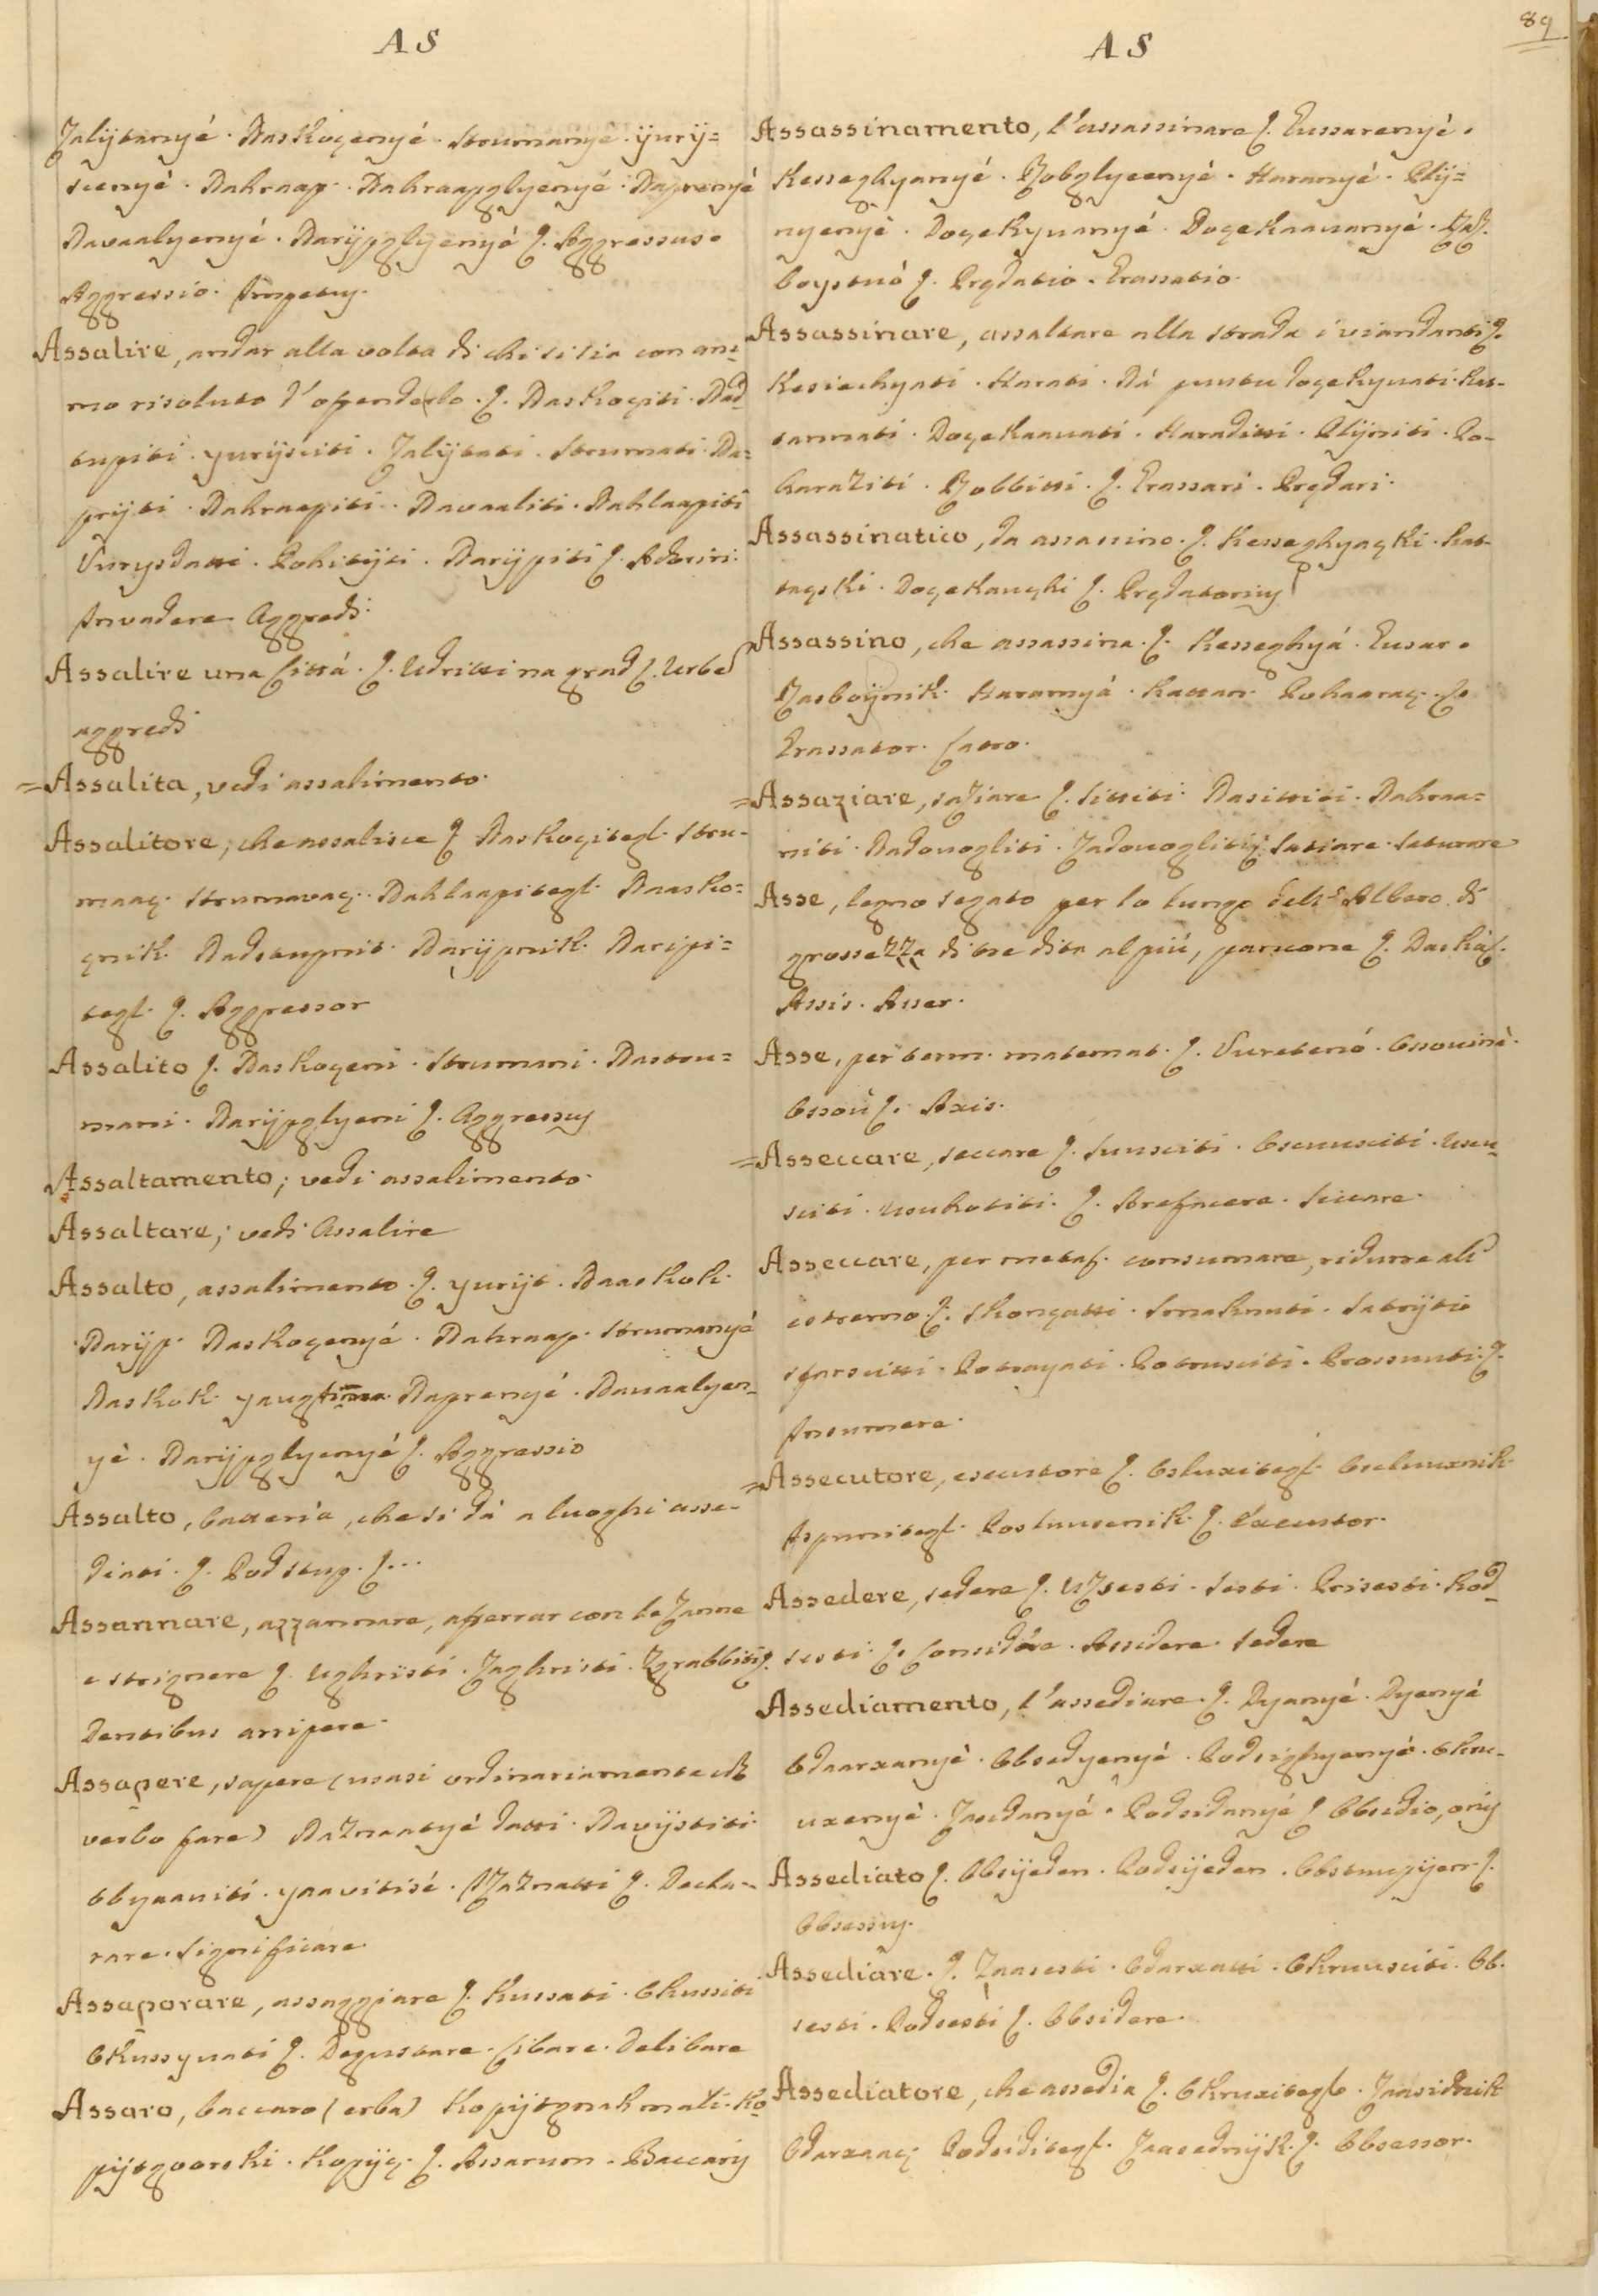 89
AS
Jalijtanyé. Naskoçenyé. Strumanyé. yurij=
scenyé. Nahraap. Nahraapglyenyé. Naprenyé
Navaalyenyé. Narijpglyenyé ʃ. Aggressus.
Aggressio. Impetus.
Assalire, andar alla volta di chi si sia con ani=
mo risoluto d'offenderlo. ʃ. Naskoçiti. Nad=
tupiti. yurijsciti. Jalijtati. Strumati. Na=
prijti. Nahraapiti. Navaaliti. Nahlaapiti
Vurysdatti. Pohitijti. Narijpiti ʃ. Adoriri.
Invadere Aggredi.
Assalire una Città. ʃ. Udritti na grad ʃ. Urbe
aggredi
=Assalita, vedi assalimento.
Assalitore, che assalisce ʃ. Naskoçitegl. Stru-
maaç. Strumavaç. Nahlaapitegl. Naasko=
çnik. Nadstupnit. Narijpnik. Naripi=
tegl. ʃ. Aggressor
Assalito ʃ. Naskoçeni. Strumani. Nastru=
mani. Narijpglyeni ʃ. Aggressus
Assaltamento; vedi assalimento.
Assaltare; vedi Assalire
Assalto, assalimento. ʃ. yurijt. Naaskok.
Narijp. Naskoçenyé. Nahraap. Strumanyé
Naskok. Naprenyé. Navaalyen=
yé. Narijpglyenyé ʃ. Aggressio
Assalto, batteria, che si dà a luoghi asse-
diati. ʃ. Podstup. ʃ...
Assannare, azzannare, afferrar con le Zanne
e strignere ʃ. Ughristi. Zaghristi. Zgrabbiti ʃ.
Dentibus arripere.
Assapere, sapere (usasi ordinariamente col
verbo fare) Naznaatyé datti. Navijstiti.
Obyaaviti. yaavitisé. Naznatti ʃ. Decla-
rare. Significare.
Assaporare, assaggiare ʃ. Kussati. Okussiti
Okussyvati ʃ. Degustare. Libare. Delibare
Assaro, baccaro (erba) Kopijtgnak mali. Ko=
pijtgvorski. Kopijç. ʃ. Assarum. Baccaris
AS
Assassinamento, l'assassinare ʃ. Eussarenyé.
Kesseghyanyé. Robglyeenyé. Haranyé. Plij=
nyenyé. Doçekyvanyé. Doçekaavanyé. Raz
boystuò ʃ. Prędatio. Grassatio.
Assassinare, assaltare alla strada i viandanti ʃ.
Kesiechyati. Harati. Ná puutu doçekyvati. Kat-
tarmati. Doçekaavati. Haraditti. Plijniti. Po-
haraziti. Robbitti. ʃ. Grassari. Prędari.
Assassinatico, da assassino. ʃ. Kesseghyaçki. Kat-
taçski. Doçekauçki ʃ. Prędatorius
Assassino, che assassina. ʃ. Kesseghyá. Eusar.
Razboijnik. Haramyá. Kattan. Pohaaraç. ʃ.
Grassator. Latro.
=Assaziare, saziare ʃ. Sittiti. Nasittiti. Nahraa=
niti. Nadovogliti. Zadovogliti ʃ. Satiare. Saturare
Asse, legno segato per lo lungo dell'Albero di
grossezza di tre dita al più, pancone ʃ. Daská ʃ.
Assis. Asser.
Asse, per term. matemat. ʃ. Vuretenó. Ossovinè.
Ossoù ʃ. Axis.
=Asseccare, seccare ʃ. Suusciti. Oscuusciti. Uscu=
sciti. Usuhotiti. ʃ. Arefacere. Siccare.
Asseccare, per metaf. consumare, ridurre all'
estremo ʃ. Skonçatti. Smaknuti. Satrijti
sfarscitti. Potrayati. Potrusciti. Prossuuti. ʃ.
Insumere.
=Assecutore, esecutore ʃ. Osluxitegl. Oscluuxnik.
Ispunitegl. Posluusenik. ʃ. Executor.
Assedere, sedere ʃ. Uzsesti. Sesti. Prisesti. Kod=
sesti. ʃ. Considére. Assidere. Sedere
Assediamento, l'assediare. ʃ. Dyanyé. Dyenyé
Odaarxanyè. Obsedyenyé. Podsighyenyé. Okru-
uxenyè. Zasedanyé. Podsidanyé ʃ. Obsidio, onis
Assediato ʃ. Obsijeden. Podsijeden. Obstuupijen ʃ.
Obsessus.
Assediare. ʃ. Zaasesti. Odarxatti. Okruusciti. Ob-
sesti. Podsesti ʃ. Obsidere.
Assediatore, che assedia ʃ. Okruxitegl. Zaasidnik
Odarxaaç. Podsiditegl. Zaasednijk. ʃ. Obsessor.